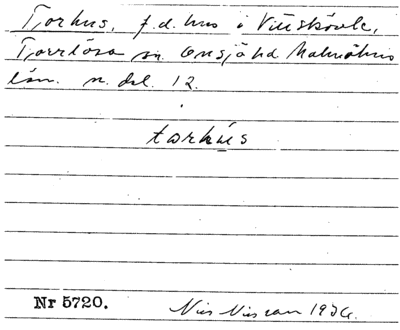 Torkus, f.d. hus i Vittskövle,
Torrlösa sn Onsjö hd Malmöhus
län. n. del. 12.
torkús
Nr 5720. Nils Nilsson 1936.